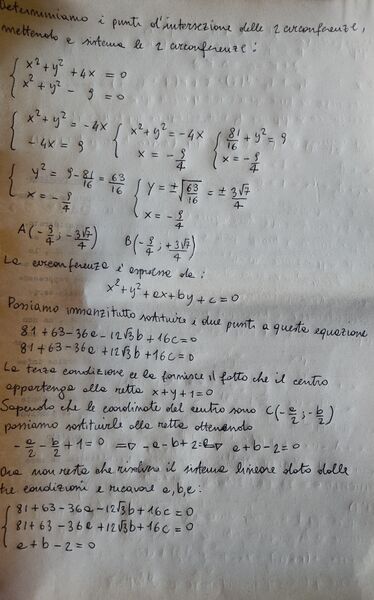 Determiniamo i punti d'intersezione delle 2 circonferenze,
mettendo a sistema le 2 circonferenze:
{ x² + y² + 4x = 0
x² + y² - 9 = 0
{ x² + y² = -4x
-4x = 9
{ x² + y² = -4x
x = -9/4
{ 81/16 + y² = 9
x = -9/4
{ y² = 9 - 81/16 = 63/16
x = -9/4
{ y = ±√63/16 = ± 3√7/4
x = -9/4
A(-9/4; -3√7/4) B(-9/4; +3√7/4)
La circonferenza è espressa da:
x² + y² + ax + by + c = 0
Possiamo innanzitutto sostituire i due punti a questa equazione
81 + 63 - 36a - 12√3b + 16c = 0
81 + 63 - 36a + 12√3b + 16c = 0
La terza condizione ce la fornisce il fatto che il centro
appartenga alla retta x + y + 1 = 0
Sapendo che le coordinate del centro sono C(-a/2; -b/2)
possiamo sostituirle alla retta ottenendo
-a/2 - b/2 + 1 = 0 => -a - b + 2 = 0 => a + b - 2 = 0
Ora non resta che risolvere il sistema lineare dato dalle
tre condizioni e ricavare a, b, c:
{ 81 + 63 - 36a - 12√3b + 16c = 0
81 + 63 - 36a + 12√3b + 16c = 0
a + b - 2 = 0